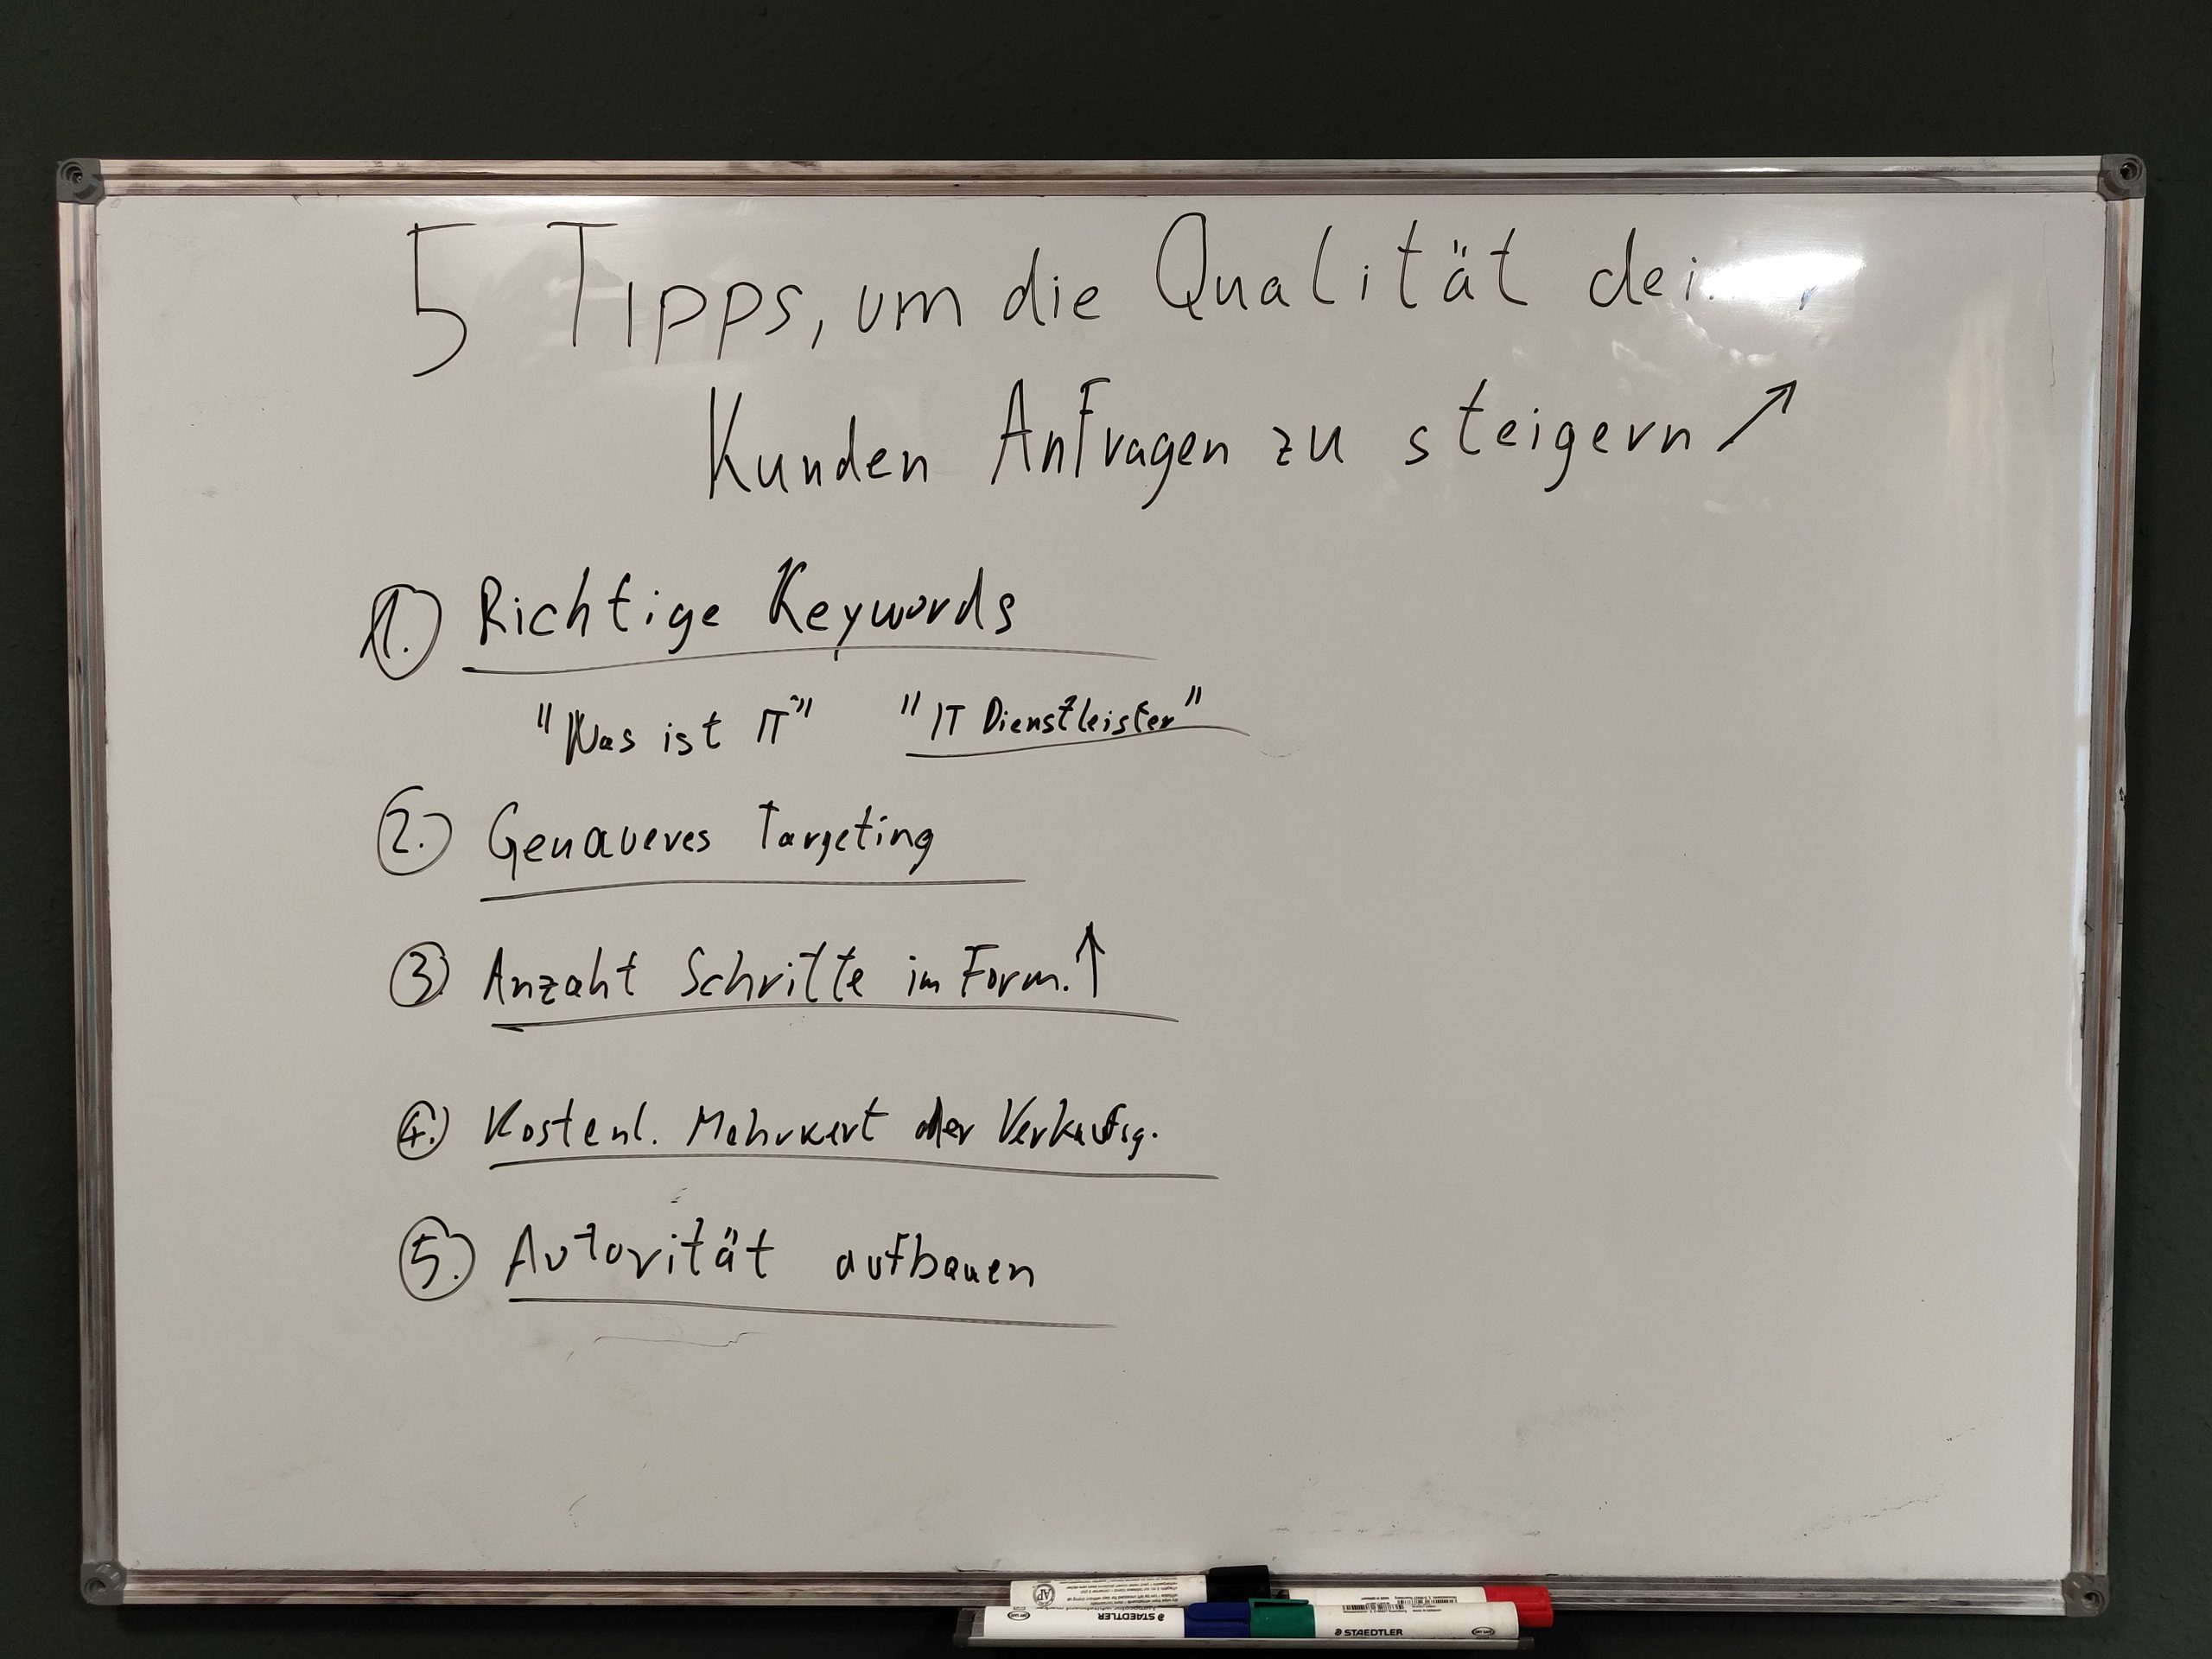 5 Tipps, um die Qualität
Kunden Anfragen zu steigern ↗
1. Richtige Keywords
"Was ist IT" "IT Dienstleister"
2. Genaueres Targeting
3. Anzahl Schritte im Form. ↑
4. Kostenl. Mehrwert oder Verkaufsg.
5. Autorität aufbauen
STAEDTLER
STAEDTLER